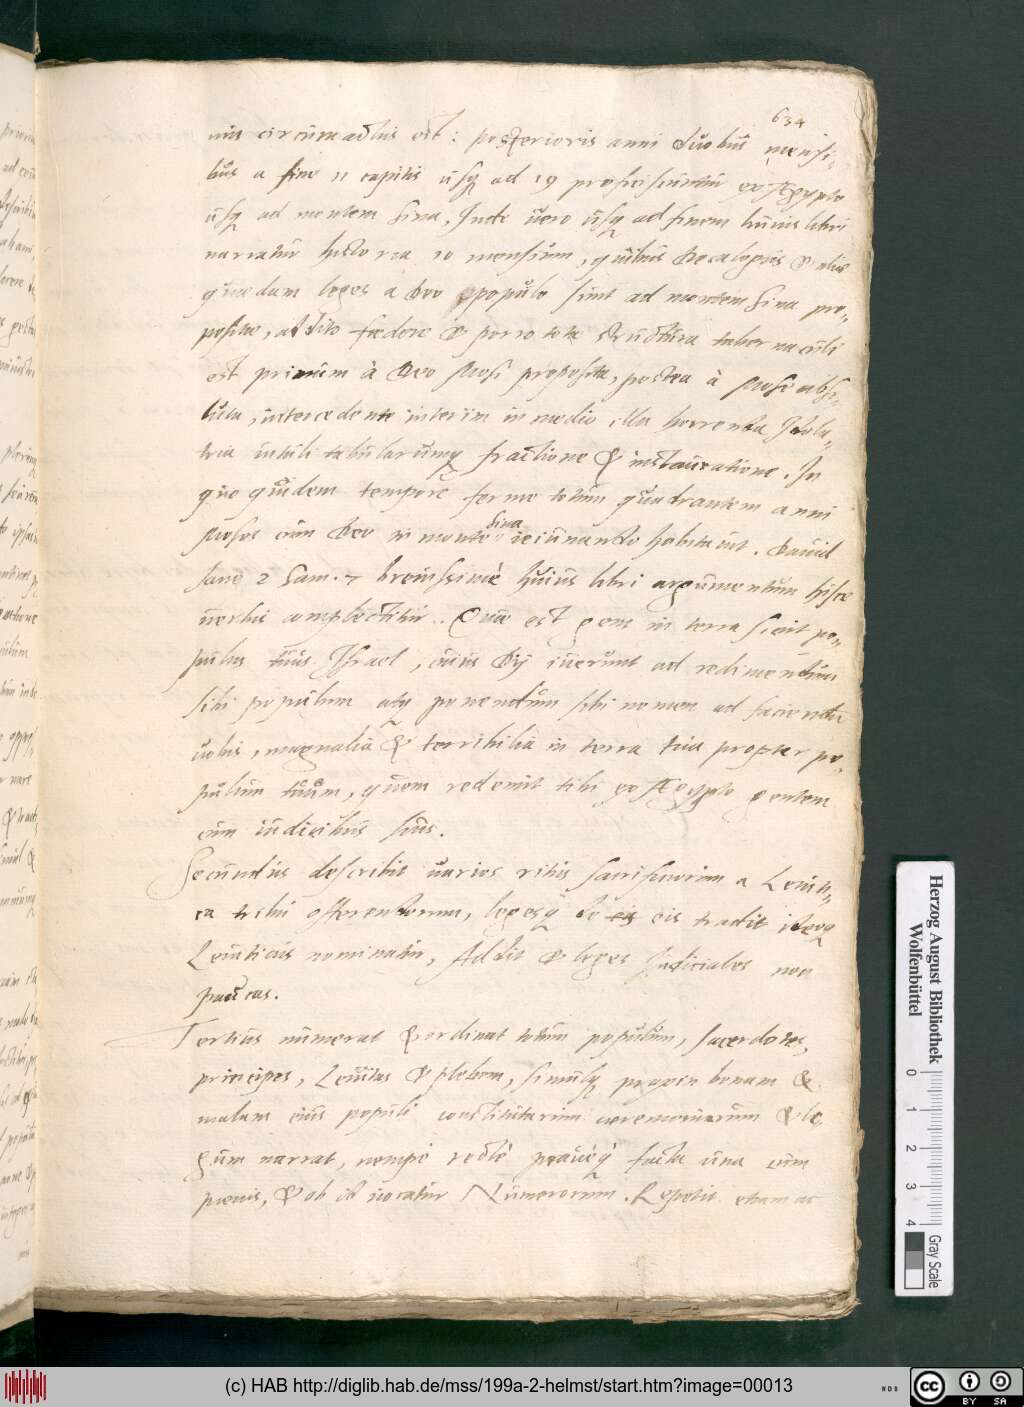 634
nia circumactus est: posterioris anni duobus mensi„
bus a fine 11 capitis usq ad 19 proficiscuntur ex Ægypto
usq ad montem Sina, Inde uero usq ad finem huius libri
narratur historia 10 mensium, quibus Decalogus & aliæ
quædam leges a Deo populo sunt ad montem Sina pro„
positæ, addito fœdere & porro tota structura tabernaculi
est primum à Deo Mosi proposita, postea à Mose abso„
luta, intercedente interim in medio illa horrenda Idola„
tria uituli tabularumq fractione & instauratione. In
quo quidem tempore ferme totum quadrantem anni
Sina
Moses cum Deo in monte ieiunando habitauit. Dauid
sane 2 Sam. 7 breuissimè huius libri argumentum hisce
uerbis complectitur. Quæ est gens in terra sicut po„
pulus tuus Israel, cuius Dij iuerunt ad redimendum
sibi populum atq ponendum sibi nomen ad faciendū
uobis, magnalia & terribilia in terra tua propter po„
pulum tuum, quem redemit tibi ex Ægypto gentem
cum iudicibus suis.
Secundus describit uarios ritus sacrificiorum a Leuiti„
ca tribu offerendorum, legesq de eis eis tradit ideoq
Leuiticus nominatur, Addit & leges Judiciales non
paucas.
Tertius numerat & ordinat totum populum, sacerdotes,
principes, Leuitas & plebem, simulq praxin bonam &
malam eius populi constitutarum ceremoniarum & le
gum narrat, nempe rectè prauèq facta una cum
pœnis, & ob id uocatur Numerorum. Repetit etiam ac
Herzog August Bibliothek
Wolfenbüttel
0 1 2 3 4
Gray Scale
(c) HAB http://diglib.hab.de/mss/199a-2-helmst/start.htm?image=00013
cc BY SA